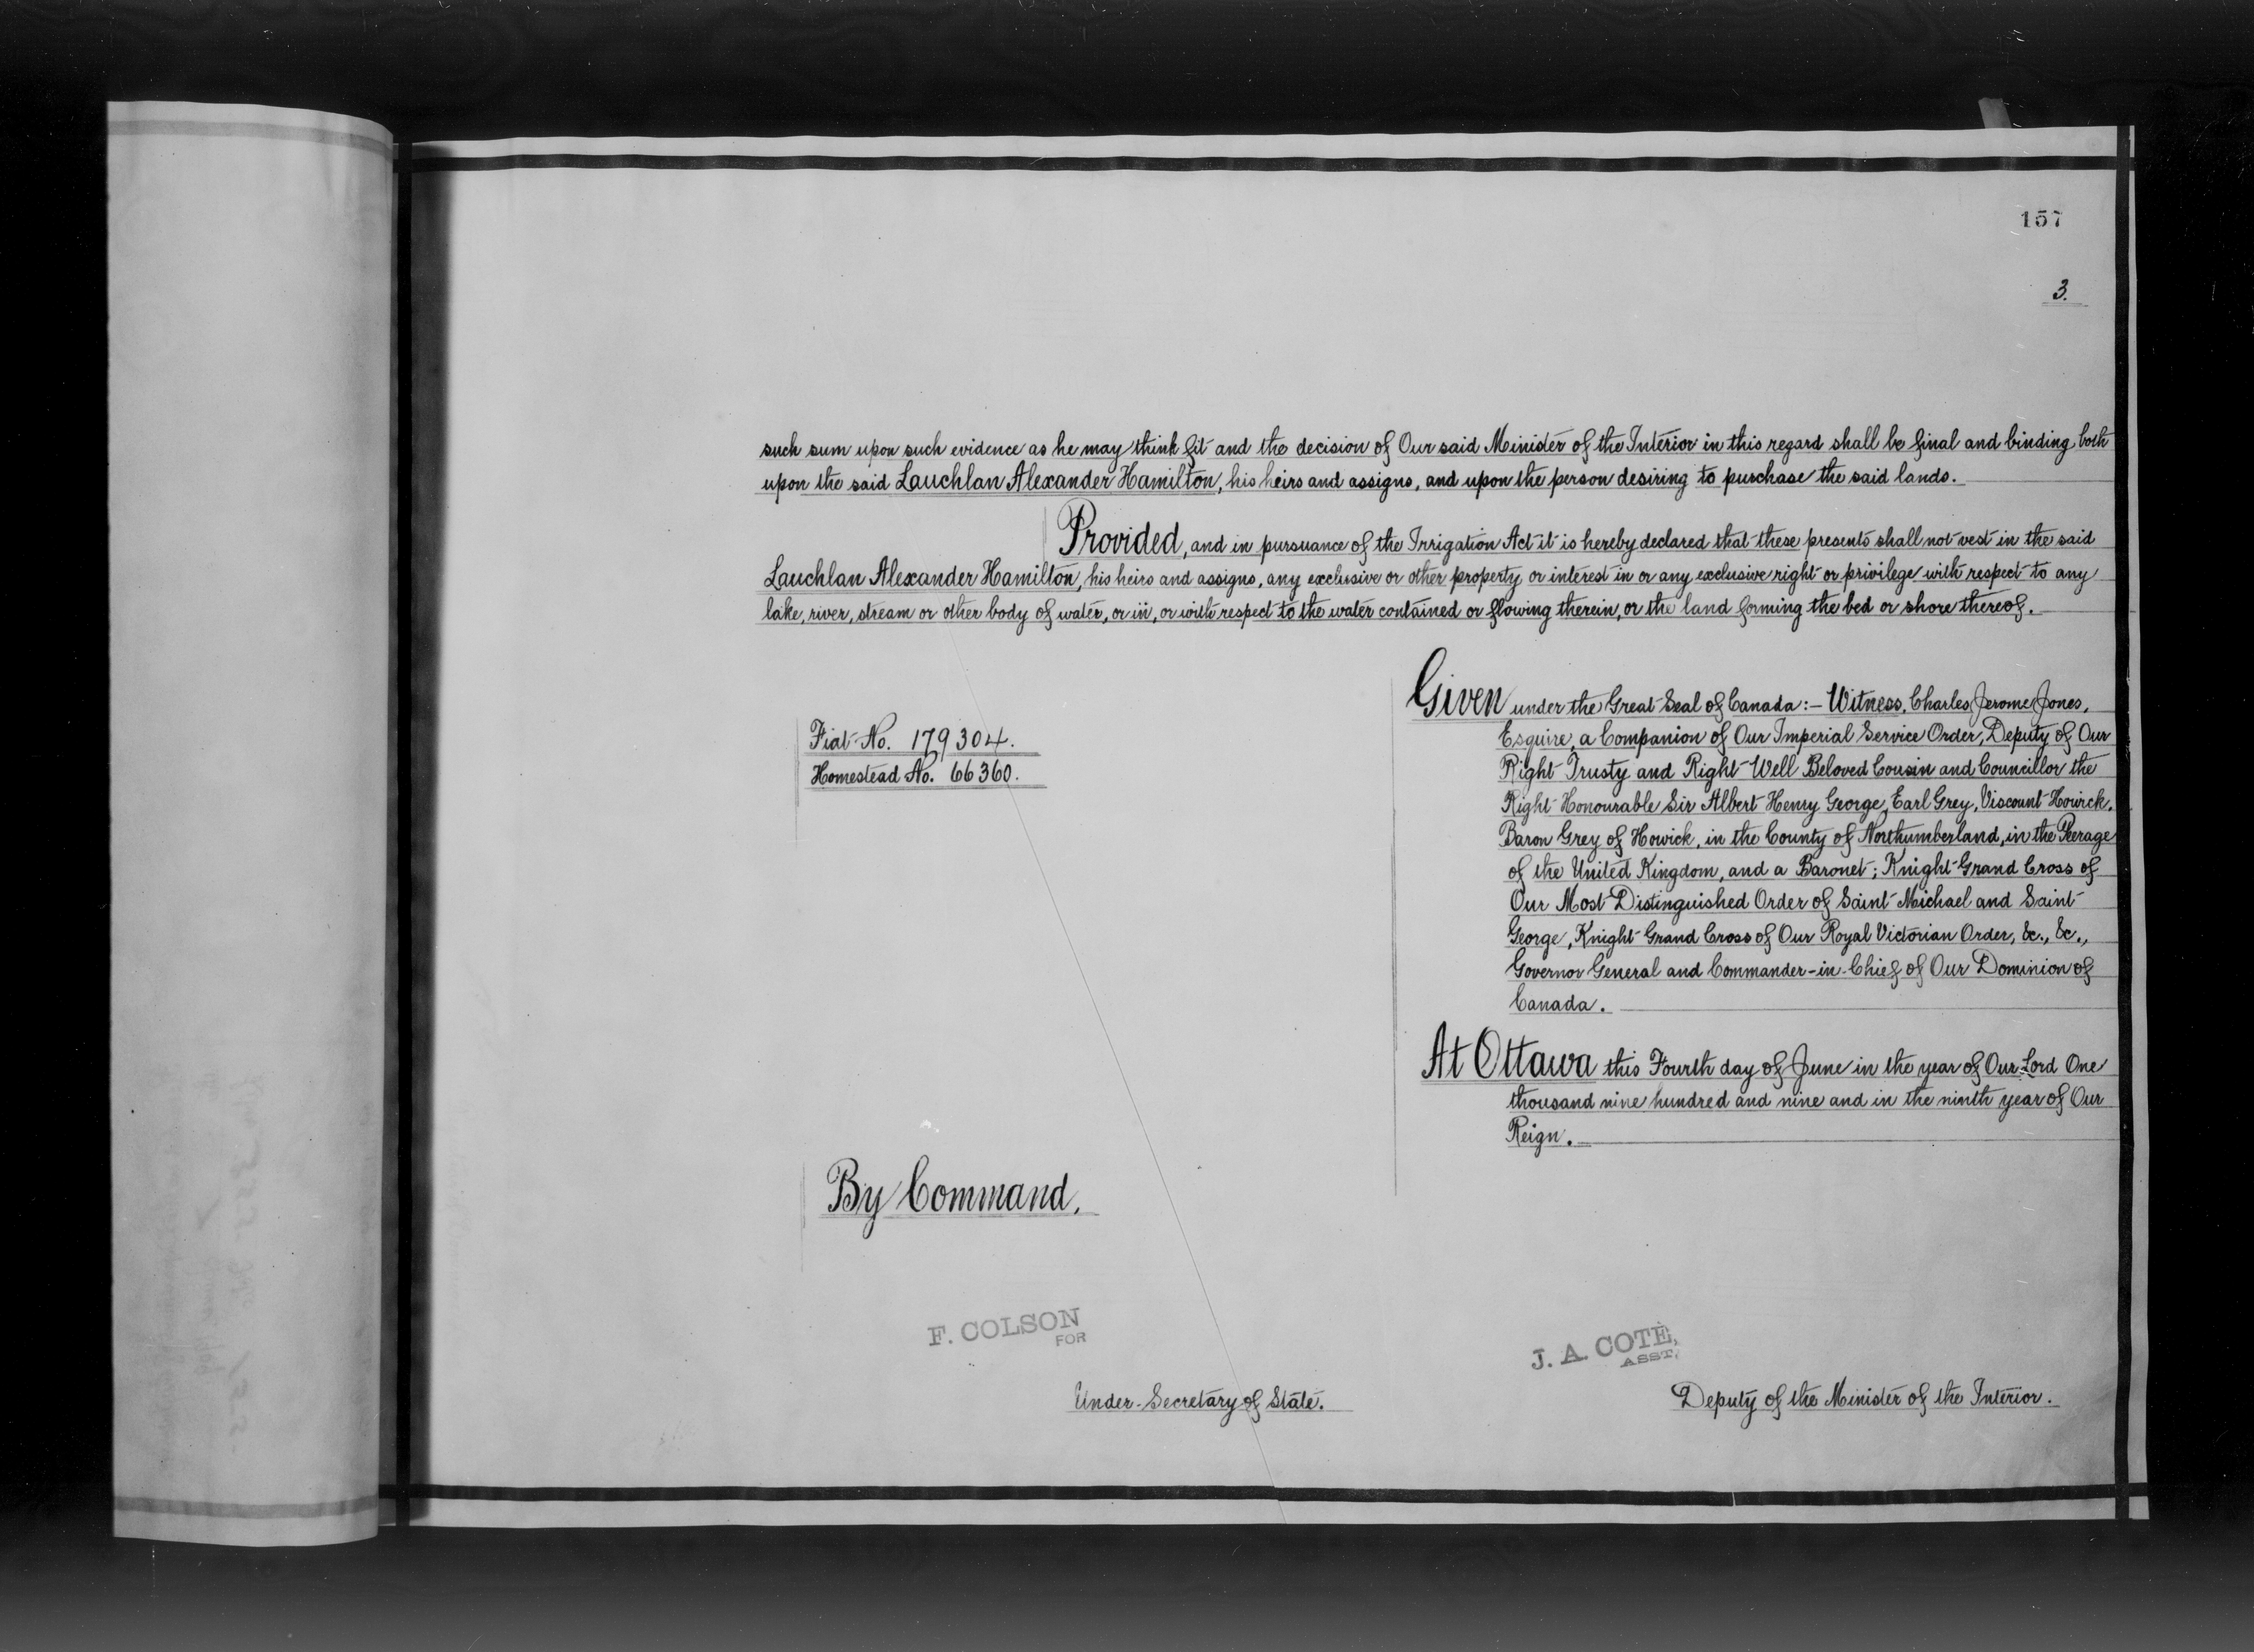 157
3.
such sum upon such evidence as he may think fit and the decision of Our said Minister of the Interior in this regard shall be final and binding both
upon the said Lauchlan Alexander Hamilton, his heirs and assigns, and upon the person desiring to purchase the said lands.
Provided, and in pursuance of the Irrigation Act it is hereby declared that these presents shall not vest in the said
Lauchlan Alexander Hamilton, his heirs and assigns, any exclusive or other property or interest in or any exclusive right or privilege with respect to any
lake, river, stream or other body of water, or in, or with respect to the water contained or flowing therein, or the land forming the bed or shore thereof.
Fiat No. 179304.
Homestead No. 66360.
Given under the Great Seal of Canada:- Witness, Charles Jerome Jones,
Esquire, a Companion of Our Imperial Service Order, Deputy of Our
Right Trusty and Right Well Beloved Cousin and Councillor the
Right Honourable Sir Albert Henry George, Earl Grey, Viscount Howick,
Baron Grey of Howick, in the County of Northumberland, in the Peerage
of the United Kingdom, and a Baronet; Knight Grand Cross of
Our Most Distinguished Order of Saint Michael and Saint
George, Knight Grand Cross of Our Royal Victorian Order, &c., &c.,
Governor General and Commander-in-Chief of Our Dominion of
Canada.
At Ottawa this Fourth day of June in the year of Our Lord One
thousand nine hundred and nine and in the ninth year of Our
Reign.
By Command,
F. COLSON
FOR
Under-Secretary of State.
J. A. COTÉ,
ASST.
Deputy of the Minister of the Interior.